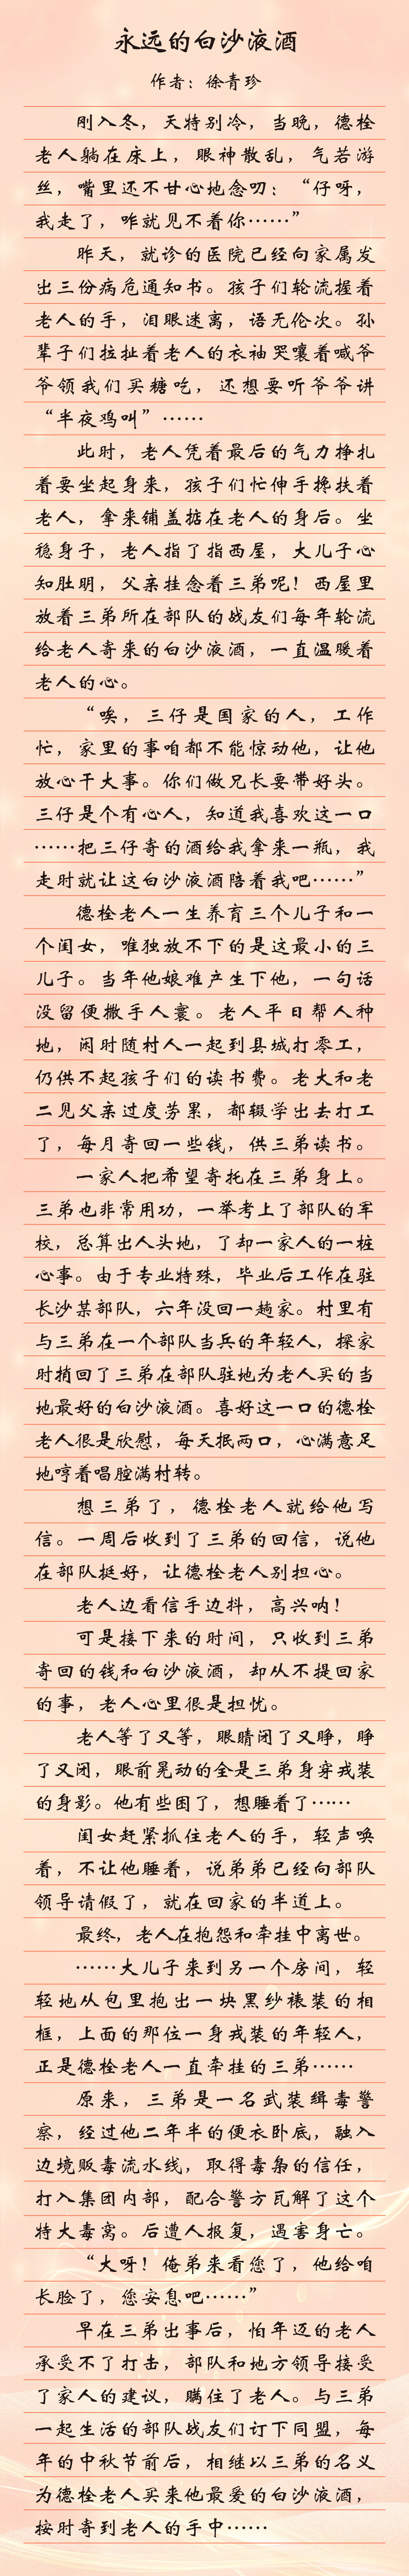 永远的白沙液酒
作者：徐青珍
刚入冬，天特别冷，当晚，德栓
老人躺在床上，眼神散乱，气若游
丝，嘴里还不甘心地念叨：“仔呀，
我走了，咋就见不着你……”
昨天，就诊的医院已经向家属发
出三份病危通知书。孩子们轮流握着
老人的手，泪眼迷离，语无伦次。孙
辈子们拉扯着老人的衣袖哭嚷着喊爷
爷领我们买糖吃，还想要听爷爷讲
“半夜鸡叫”……
此时，老人凭着最后的气力挣扎
着要坐起身来，孩子们忙伸手搀扶着
老人，拿来铺盖掂在老人的身后。坐
稳身子，老人指了指西屋，大儿子心
知肚明，父亲挂念着三弟呢！西屋里
放着三弟所在部队的战友们每年轮流
给老人寄来的白沙液酒，一直温暖着
老人的心。
“唉，三仔是国家的人，工作
忙，家里的事咱都不能惊动他，让他
放心干大事。你们做兄长要带好头。
三仔是个有心人，知道我喜欢这一口
……把三仔寄的酒给我拿来一瓶，我
走时就让这白沙液酒陪着我吧……”
德栓老人一生养育三个儿子和一
个闺女，唯独放不下的是这最小的三
儿子。当年他娘难产生下他，一句话
没留便撒手人寰。老人平日帮人种
地，闲时随村人一起到县城打零工，
仍供不起孩子们的读书费。老大和老
二见父亲过度劳累，都辍学出去打工
了，每月寄回一些钱，供三弟读书。
一家人把希望寄托在三弟身上。
三弟也非常用功，一举考上了部队的军
校，总算出人头地，了却一家人的一桩
心事。由于专业特殊，毕业后工作在驻
长沙某部队，六年没回一趟家。村里有
与三弟在一个部队当兵的年轻人，探家
时捎回了三弟在部队驻地为老人买的当
地最好的白沙液酒。喜好这一口的德栓
老人很是欣慰，每天抿两口，心满意足
地哼着唱腔满村转。
想三弟了，德栓老人就给他写
信。一周后收到了三弟的回信，说他
在部队挺好，让德栓老人别担心。
老人边看信手边抖，高兴呐！
可是接下来的时间，只收到三弟
寄回的钱和白沙液酒，却从不提回家
的事，老人心里很是担忧。
老人等了又等，眼睛闭了又睁，睁
了又闭，眼前晃动的全是三弟身穿戎装
的身影。他有些困了，想睡着了……
闺女赶紧抓住老人的手，轻声唤
着，不让他睡着，说弟弟已经向部队
领导请假了，就在回家的半道上。
最终，老人在抱怨和牵挂中离世。
……大儿子来到另一个房间，轻
轻地从包里抱出一块黑纱裱装的相
框，上面的那位一身戎装的年轻人，
正是德栓老人一直牵挂的三弟……
原来，三弟是一名武装缉毒警
察，经过他二年半的便衣卧底，融入
边境贩毒流水线，取得毒枭的信任，
打入集团内部，配合警方瓦解了这个
特大毒窝。后遭人报复，遇害身亡。
“大呀！俺弟来看您了，他给咱
长脸了，您安息吧……”
早在三弟出事后，怕年迈的老人
承受不了打击，部队和地方领导接受
了家人的建议，瞒住了老人。与三弟
一起生活的部队战友们订下同盟，每
年的中秋节前后，相继以三弟的名义
为德栓老人买来他最爱的白沙液酒，
按时寄到老人的手中……